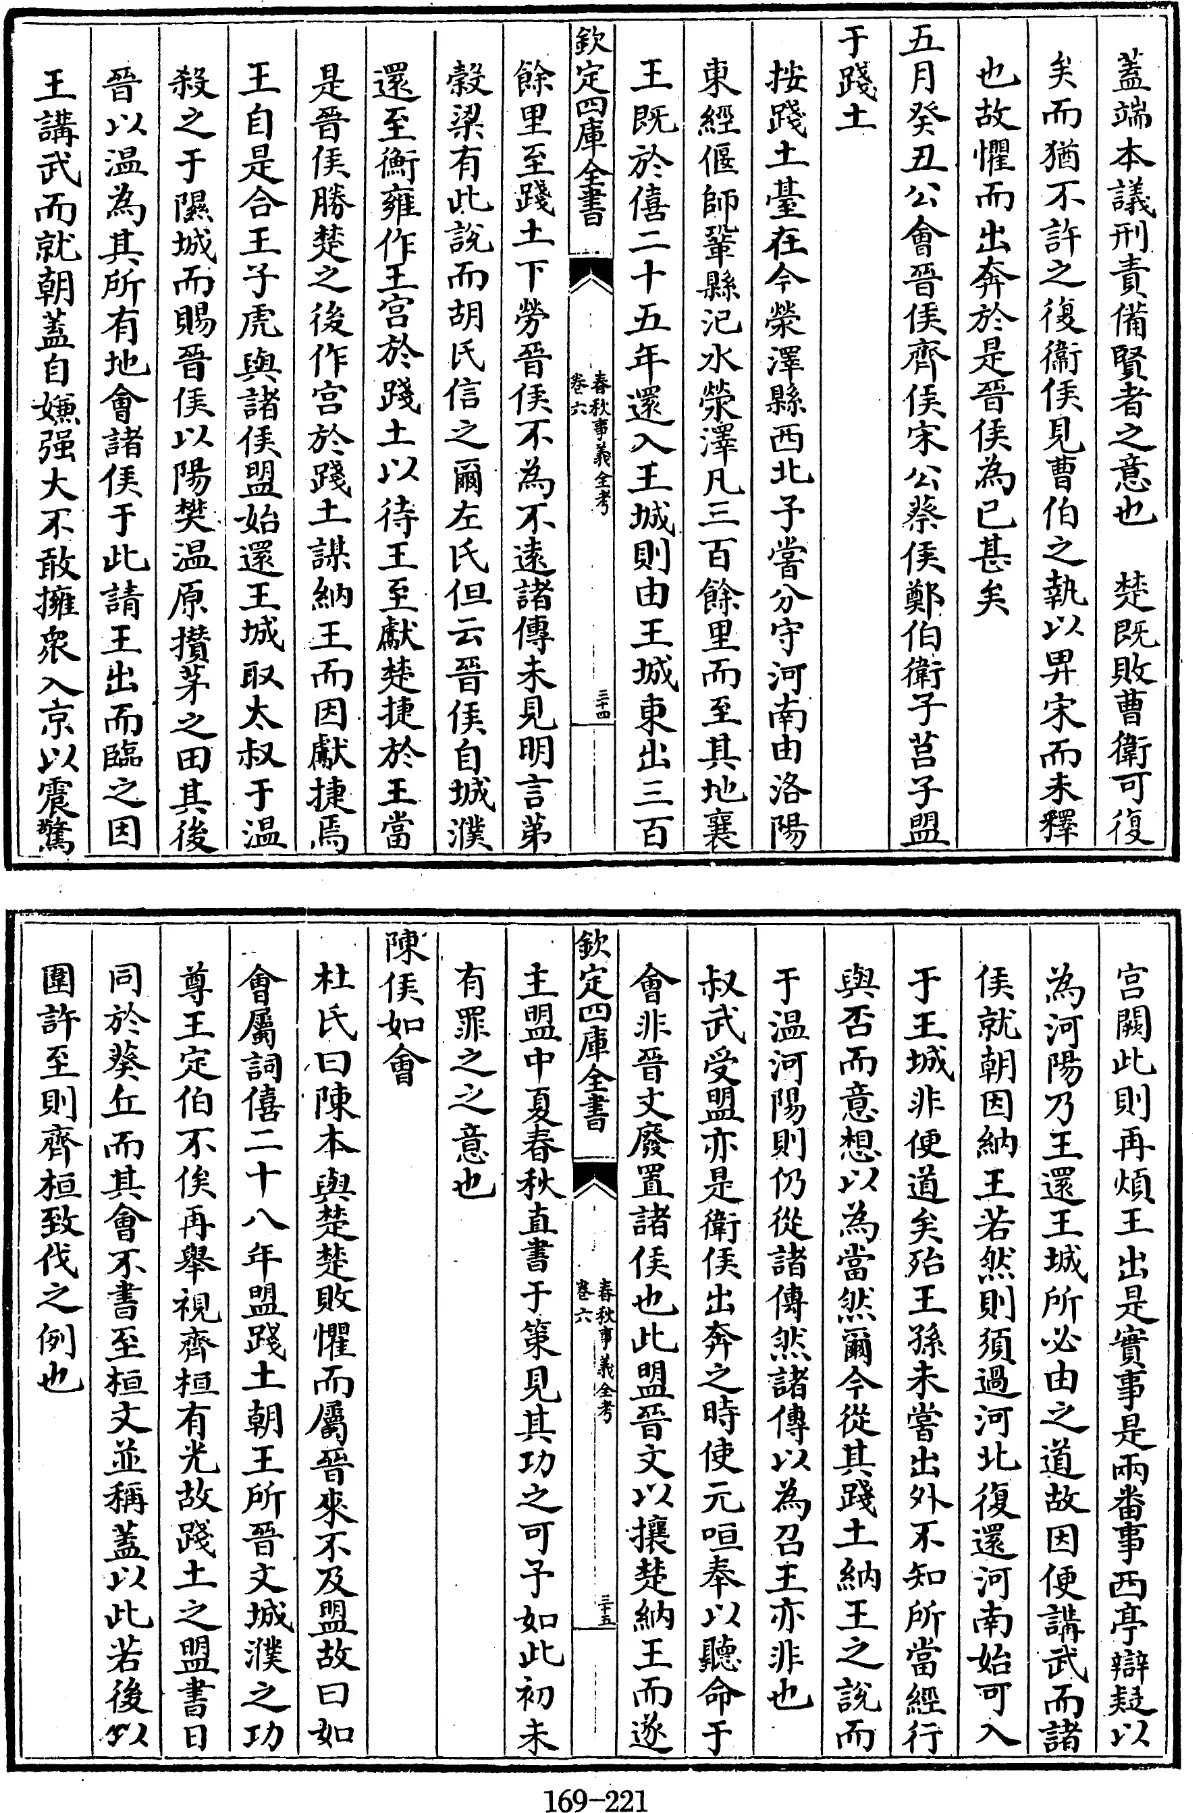 蓋端本議刑責備賢者之意也　楚既敗曹衛可復
矣而猶不許之復衛侯見曹伯之執以畀宋而未釋
也故懼而出奔於是晉侯為已甚矣
五月癸丑公會晉侯齊侯宋公蔡侯鄭伯衛子莒子盟
于踐土
按踐土臺在今滎澤縣西北予嘗分守河南由洛陽
東經偃師鞏縣汜水滎澤凡三百餘里而至其地襄
王既於僖二十五年還入王城則由王城東出三百
欽定四庫全書
春秋事義全考
卷六
三十四
餘里至踐土下勞晉侯不為不遠諸傳未見明言第
穀梁有此說而胡氏信之爾左氏但云晉侯自城濮
還至衡雍作王宮於踐土以待王至獻楚捷於王當
是晉侯勝楚之後作宮於踐土謀納王而因獻捷焉
王自是合王子虎與諸侯盟始還王城取太叔于溫
殺之于隰城而賜晉侯以陽樊溫原攢茅之田其後
晉以溫為其所有地會諸侯于此請王出而臨之因
王講武而就朝蓋自嫌强大不敢擁衆入京以震驚
宮闕此則再煩王出是實事是兩番事西亭辯疑以
為河陽乃王還王城所必由之道故因便講武而諸
侯就朝因納王若然則須過河北復還河南始可入
于王城非便道矣殆王孫未嘗出外不知所當經行
與否而意想以為當然爾今從其踐土納王之說而
于溫河陽則仍從諸傳然諸傳以為召王亦非也
叔武受盟亦是衛侯出奔之時使元咺奉以聽命于
會非晉文廢置諸侯也此盟晉文以攘楚納王而遂
欽定四庫全書
春秋事義全考
卷六
三十五
主盟中夏春秋直書于策見其功之可予如此初未
有罪之之意也
陳侯如會
杜氏曰陳本與楚楚敗懼而屬晉來不及盟故曰如
會屬詞僖二十八年盟踐土朝王所晉文城濮之功
尊王定伯不俟再舉視齊桓有光故踐土之盟書日
同於葵丘而其會不書至桓文並稱蓋以此若後以
圍許至則齊桓致伐之例也
169-221